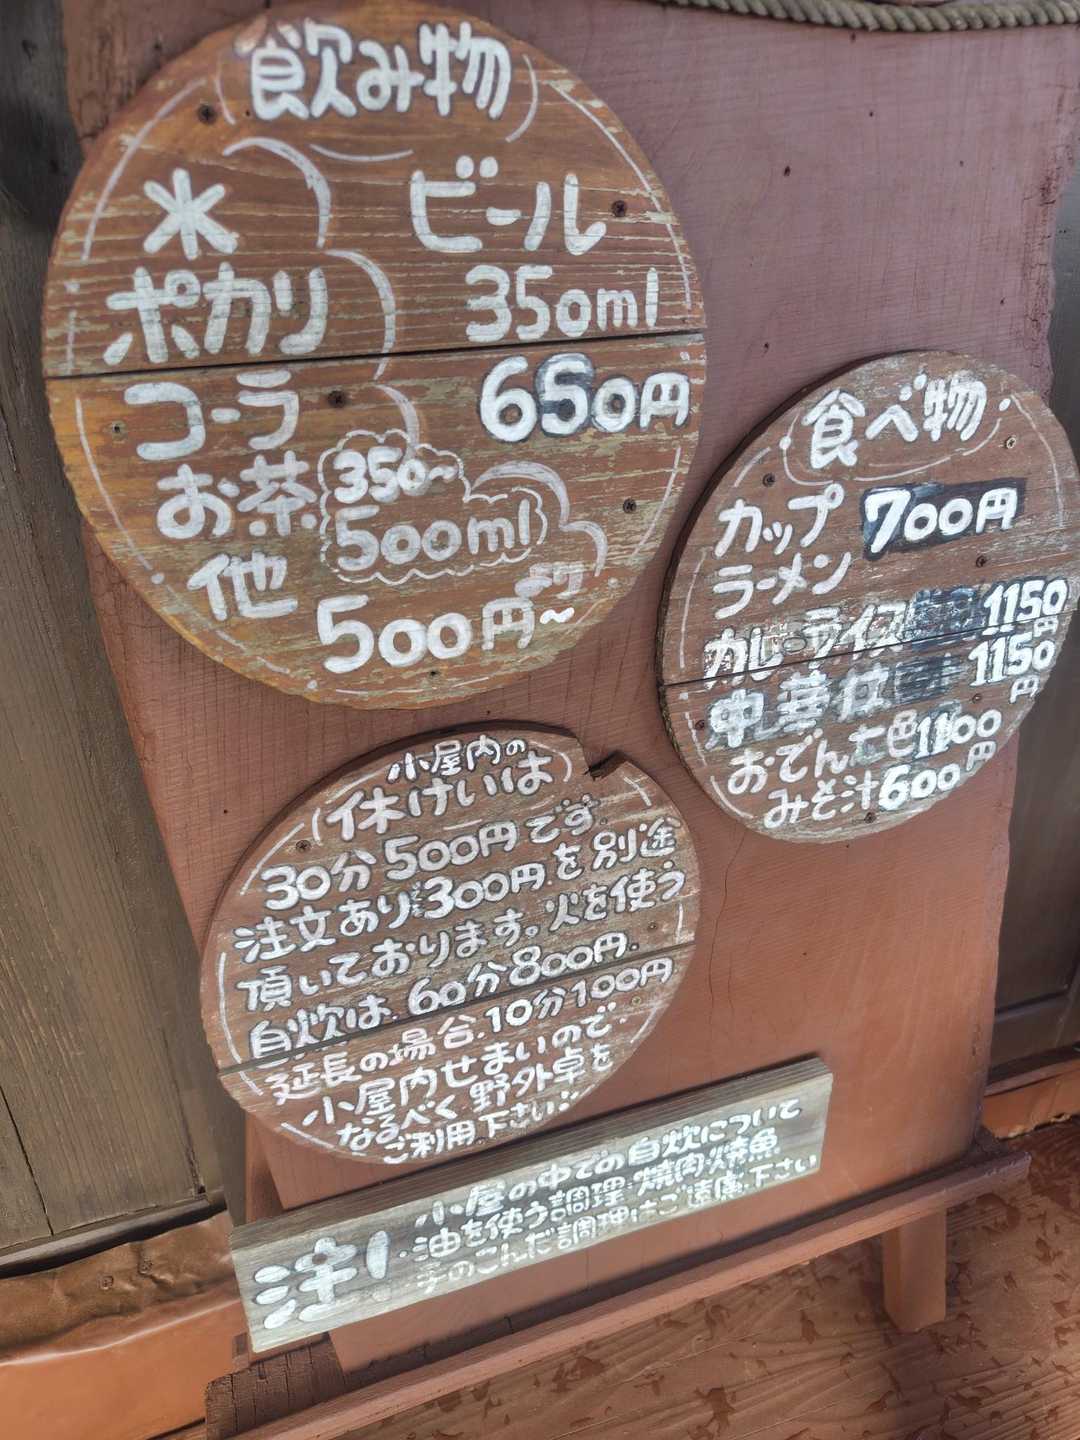 飲み物
水
ポカリ
コーラ
お茶
他
350〜
500ml
500円より〜
ビール
350ml
650円
食べ物
カップ
ラーメン 700円
カレーライス 1150円
中華丼 1150円
おでん七色1100円
みそ汁600円
小屋内の
休けいは
30分500円です。
注文あり300円を別途
頂いております。火を使う
自炊は、60分800円.
延長の場合.10分100円
小屋内せまいので.
なるべく野外卓を
ご利用下さい
注!
小屋の中での自炊について
・油を使う調理・焼肉・焼魚
手のこんだ調理はご遠慮下さい